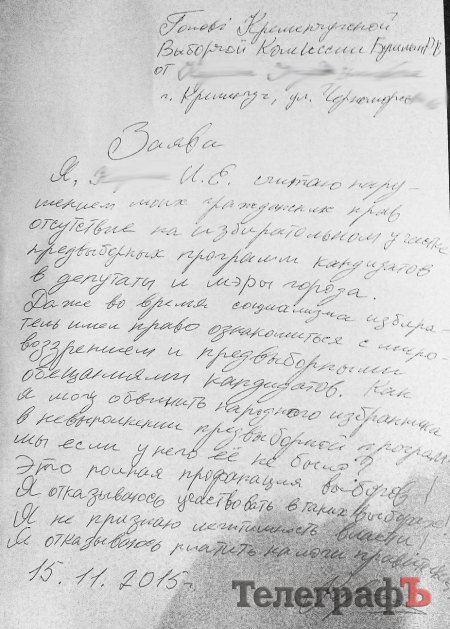 Голові Кременчугской
Выборчой Комиссии Бурилен Р.В.
от
г. Кременчуг, ул. Черноморс
Заява
Я, И.Е. считаю нару-
шением моих гражданских прав
отсутствие на избирательном участке
предвыборных программ кандидатов
в депутаты и мэры города.
Даже во время социализма избира-
тель имел право ознакомиться с миро-
воззрением и предвыборными
обещаниями кандидатов. Как
я могу обвинить народного избранника
в невыполнении предвыборной програм-
мы если у него её не было?
Это полная профанация выборов!
Я отказываюсь участвовать в таких выборах!
Я не признаю легитимность власти!
Я отказываюсь платить налоги
15.11.2015г
ТелеграфЪ